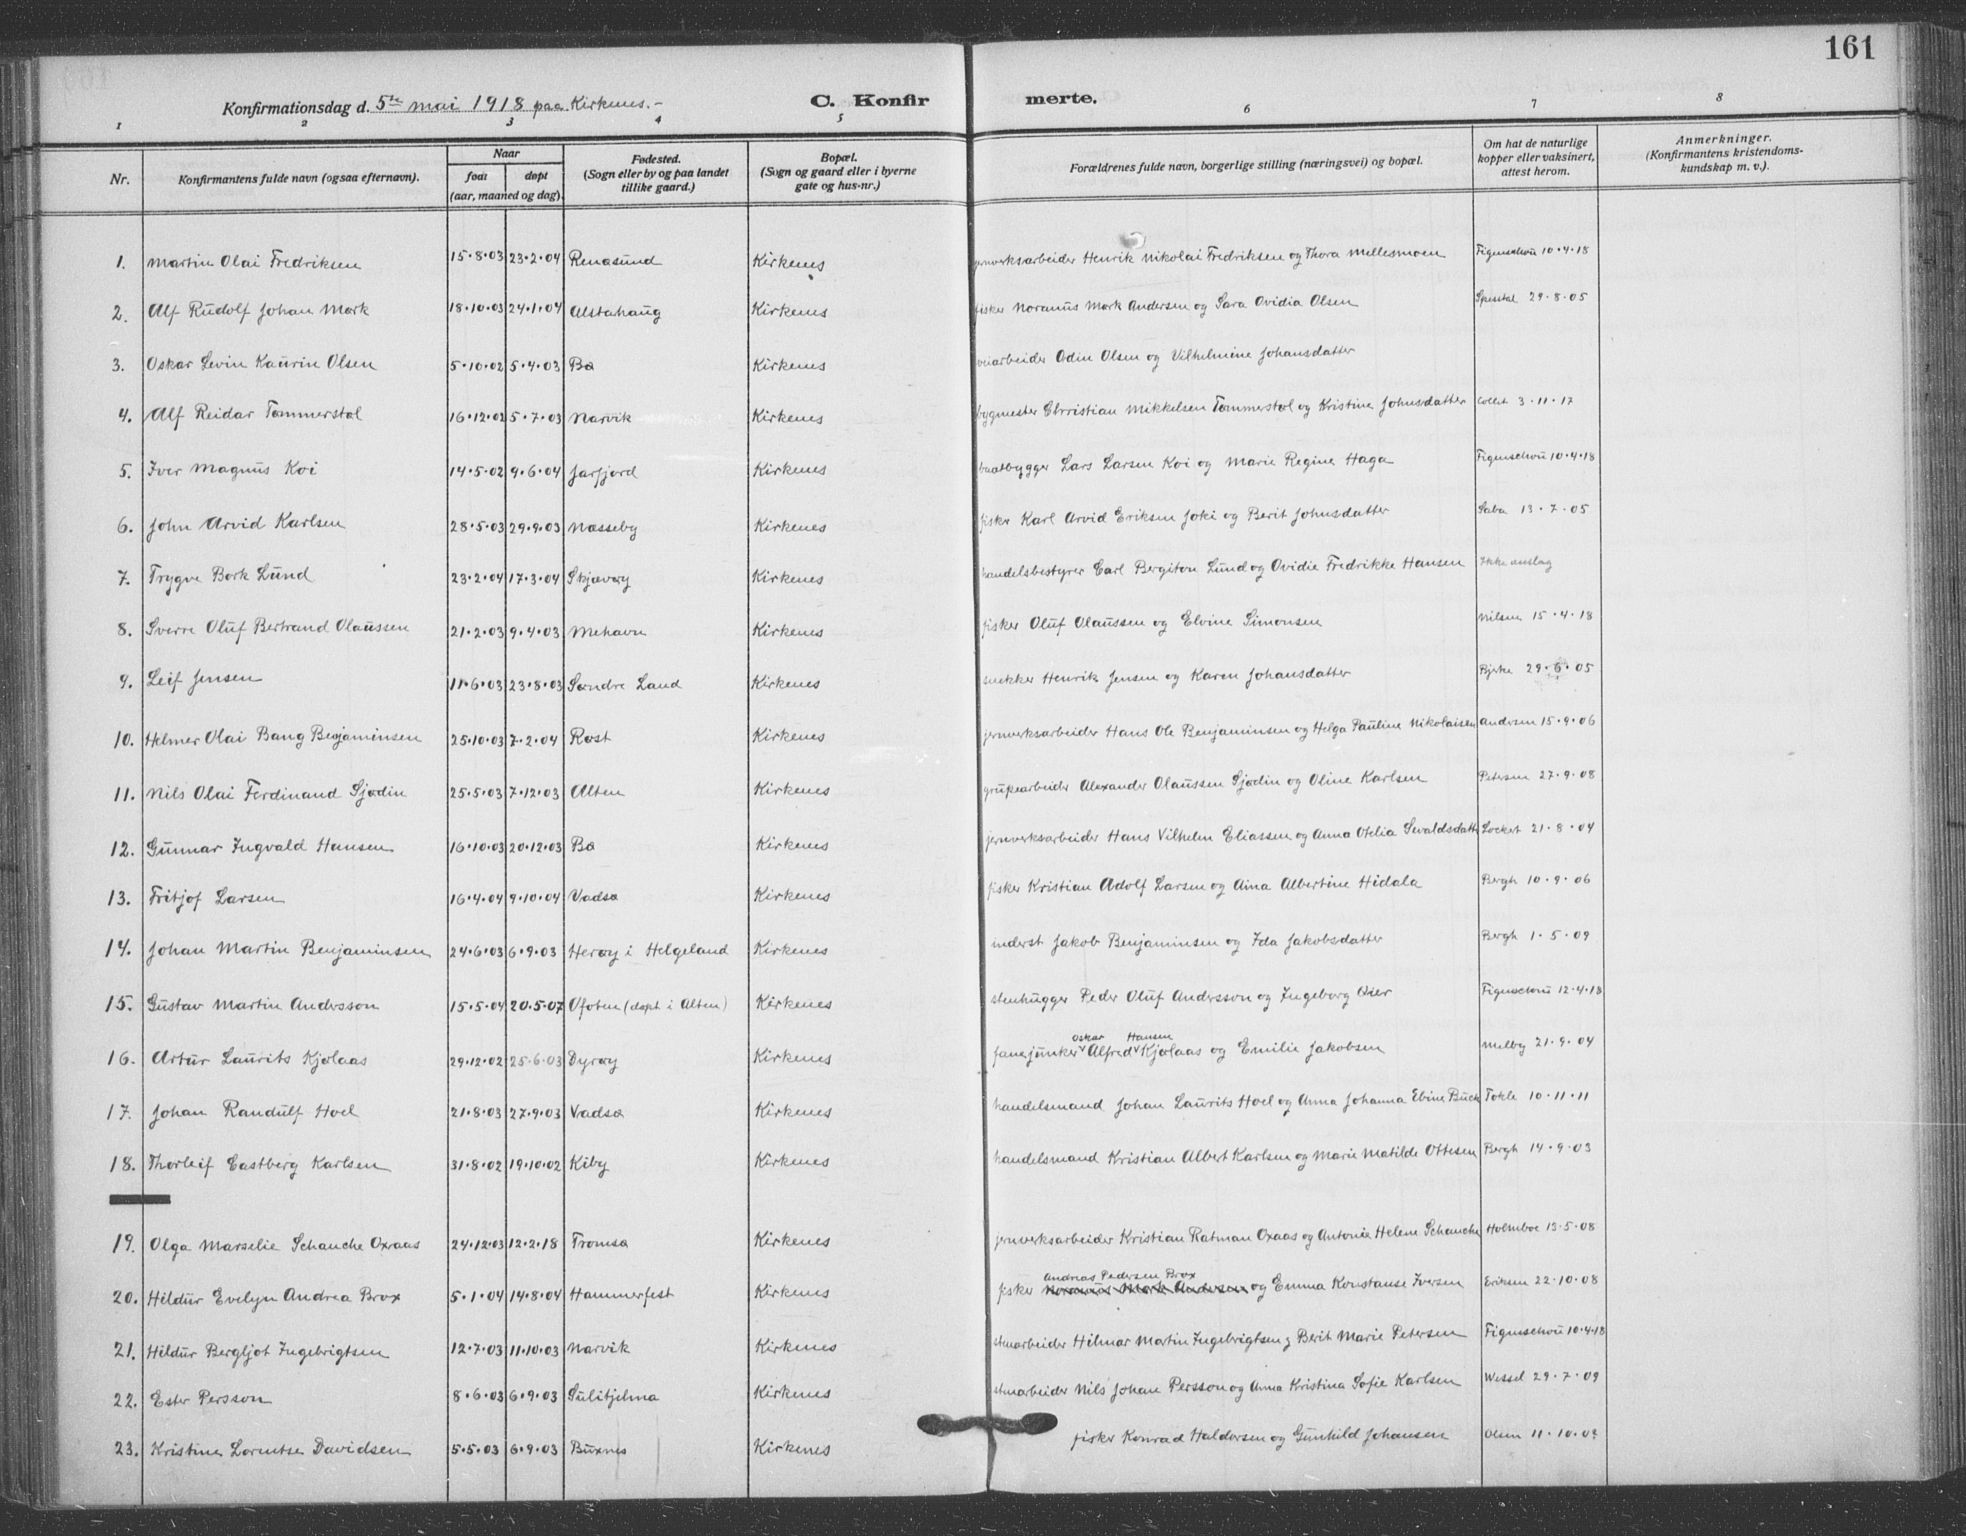 161
Konfirmationsdag d. 5te mai 1918 paa Kirkenes.-
C. Konfirmerte.
1 2 3 4 5 6 7 8
Nr. Konfirmantens fulde navn (ogsaa efternavn). Naar født døpt (aar, maaned og dag). Fødested. (Sogn eller by og paa landet tillike gaard.) Bopæl. (Sogn og gaard eller i byerne gate og hus-nr.) Forældrenes fulde navn, borgerlige stilling (næringsvei) og bopæl. Om hat de naturlige kopper eller vaksinert, attest herom. Anmerkninger. (Konfirmantens kristendomskundskap m. v.).
1. Martin Olai Fredriksen 15.8.03 23.2.04 Renøsund Kirkenes jernverksarbeider Henrik Nikolai Fredriksen og Thora Mellesmoen Figenschou 10.4.18
2. Alf Rudolf Johan Mørk 18.10.03 24.1.04 Alstahaug Kirkenes fisker Noranus Mørk Andersen og Sara Ovidia Olsen 29.8.05
3. Oskar Levin Kaurin Olsen 5.10.02 5.4.03 Bø Kirkenes veiarbeider Odin Olsen og Vilhelmine Johansdatter
4. Alf Reidar Tømmerstøl 16.12.02 5.7.03 Narvik Kirkenes bygmester Christian Mikkelsen Tømmerstøl og Kristine Johnsdatter Collet 3.11.17
5. Iver Magnus Koi 14.5.02 9.6.04 Jarfjord Kirkenes baatbygger Lars Larsen Koi og Marie Regine Haga Figenschou 10.4.18
6. John Arvid Karlsen 28.5.03 29.9.03 Næsseby Kirkenes fisker Karl Arvid Eriksen Joki og Berit Johnsdatter Saba 13.7.05
7. Trygve Børk Lund 23.2.04 17.3.04 Skjærvøy Kirkenes handelsbestyrer Carl Bergiton Lund og Ovidie Fredrikke Hansen Ikke anslag
8. Sverre Oluf Bertrand Olaussen 21.2.03 9.4.03 Mehavn Kirkenes fisker Oluf Olaussen og Elvine Simonsen Nilsen 15.4.18
9. Leif Jensen 11.6.03 23.8.03 Søndre Land Kirkenes snekker Henrik Jensen og Karen Johansdatter Bjerke 29.6.05
10. Helmer Olai Bang Benjaminsen 25.10.03 7.2.04 Røst Kirkenes jernverksarbeider Hans Ole Benjaminsen og Helga Pauline Nikolaisen Andersen 15.9.06
11. Nils Olai Ferdinand Sjødin 25.5.03 7.12.03 Alten Kirkenes grupearbeider Alexander Olaussen Sjødin og Oline Karlsen Petersen 27.9.08
12. Gunnar Ingvald Hansen 16.10.03 20.12.03 Bø Kirkenes jernverksarbeider Hans Vilhelm Eliassen og Anna Otelia Sivaldsdatt Lockert 21.8.04
13. Fritjof Larsen 16.4.04 9.10.04 Vadsø Kirkenes fisker Kristian Adolf Larsen og Aina Albertine Hidala Bergh 10.9.06
14. Johan Martin Benjaminsen 24.6.03 6.9.03 Herøy i Helgeland Kirkenes inderst Jakob Benjaminsen og Ida Jakobsdatter Bergh 1.5.09
15. Gustav Martin Andersson 15.5.04 20.5.07 Ofoten (døpt i Alten) Kirkenes stenhugger Peder Oluf Andersson og Ingeborg Figenschou 12.4.18
16. Artur Laurits Kjølaas 29.12.02 25.6.03 Dyrøy Kirkenes fanejunker Oskar Alfred Hansen Kjølaas og Emilie Jakobsen Melby 21.9.04
17. Johan Randulf Hoel 21.8.03 27.9.03 Vadsø Kirkenes handelsmand Johan Laurits Hoel og Anna Johanna Ebine Buck Tokle 10.11.11
18. Thorleif Eastberg Karlsen 31.8.02 19.10.02 Kiby Kirkenes handelsmand Kristian Albert Karlsen og Marie Matilde Ottesen Bergh 14.9.03
19. Olga Marselie Schanche Oxaas 24.12.03 12.2.18 Tromsø Kirkenes jernverksarbeider Kristian Ratman Oxaas og Antonie Helene Schanche Holmboe 13.5.08
20. Hildur Evelyn Andrea Brox 5.1.04 14.8.04 Hammerfest Kirkenes fisker Andreas Pedersen Brox Noranus Mørk Andersen og Emma Konstanse Iversen Eriksen 22.10.08
21. Hildur Bergljot Ingebrigtsen 12.7.03 11.10.03 Narvik Kirkenes stenarbeider Hilmar Martin Ingebrigtsen og Berit Marie Petersen Figenschou 10.4.18
22. Ester Persson 8.6.03 6.9.03 Sulitjelma Kirkenes stenarbeider Nils Johan Persson og Anna Kristina Sofie Karlsen Wessel 29.7.09
23. Kristine Lorentse Davidsen 5.5.03 6.9.03 Buxnes Kirkenes fisker Konrad Haldorsen og Gunhild Johansen Olsen 11.10.03